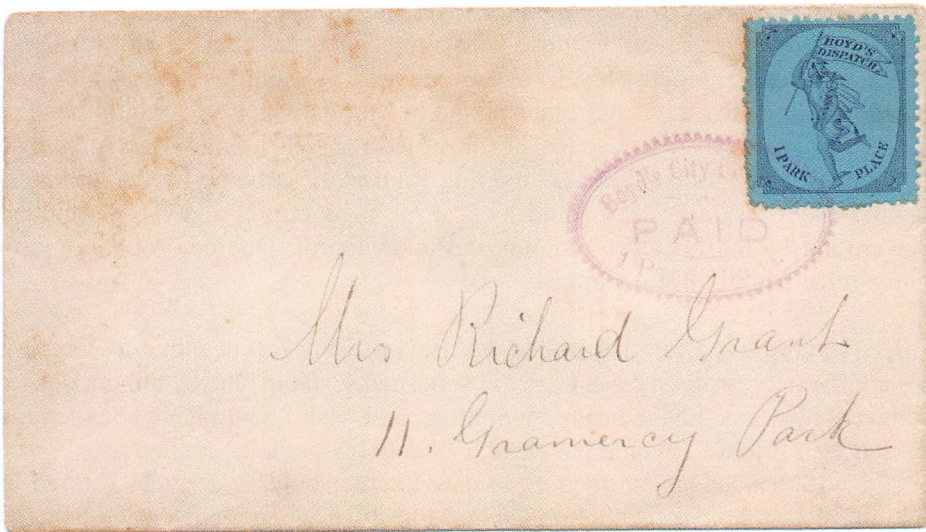 BOYD'S
DISPATCH
1 PARK PLACE
Boyd's City
PAID
1 P
Mrs Richard Grant
11. Gramercy Park